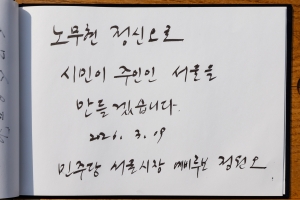 노무현 정신으로
시민이 주인인 서울을
만들겠습니다.
2026. 3. 09
민주당 서울시장 예비후보 정원오